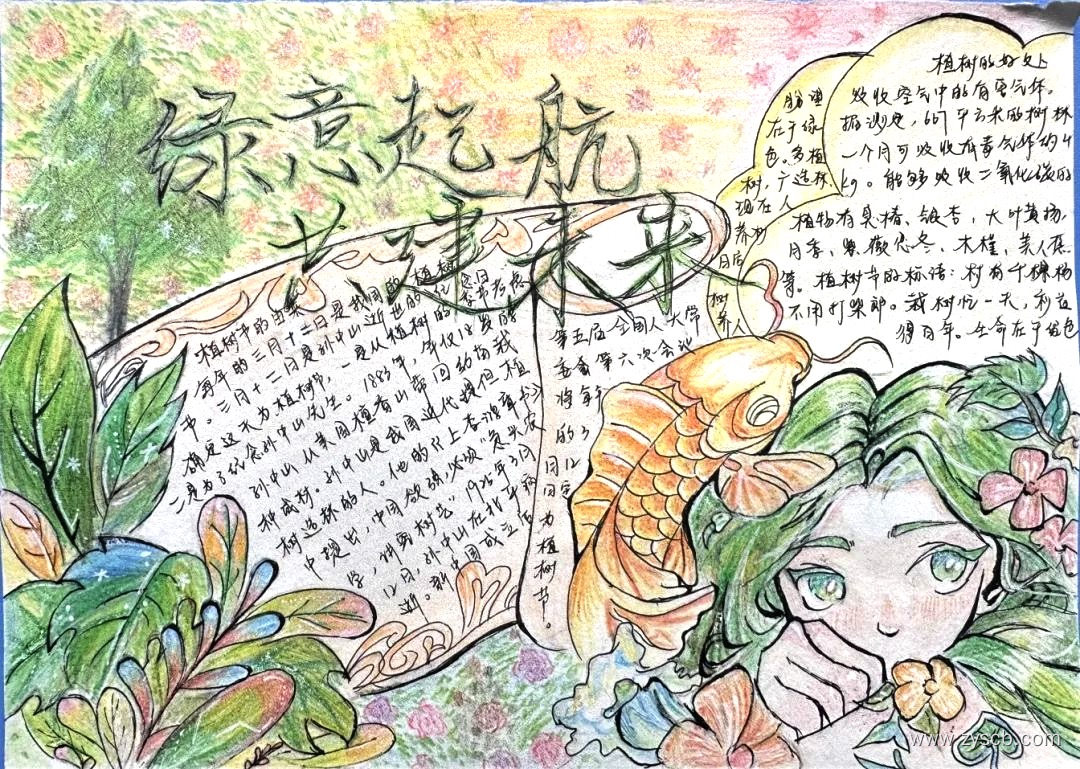 绿意起航
共建未来
植树节的由来
每年的三月十二日是我国的植树
节。三月十二日是孙中山逝世的忌日
确定这天为植树节,一是从植树的
二是为了纪念孙中山先生。1883年,年仅
孙中山从美国檀香山带回的
种成材。孙中山是我国近代提倡植
树造林的人。他的《上李鸿章书》
中提出,中国欲强,必须"急兴农
学,讲究树艺"1925年3月
12日,孙中山在北平病
逝。新中国成立后
第五届全国人大常
委会第六次会议
将每年
的3
月12
日定
为植
树节。
植树的好处
吸收空气中的有害气体。
据测定,667平方米的树林
一个月可吸收有毒气体约4
kg。能够吸收二氧化硫的
植物有臭椿、银杏,大叶黄杨,
月季,
忍冬、木槿,美人蕉
等。植树节的标语:村有千棵杨
不用打柴郎。栽树忙一天,利益
得百年。生命在于绿色
在于绿
色。多植
树,广造林,
现在人
养树
日后
树
养人
www.zyscb.com